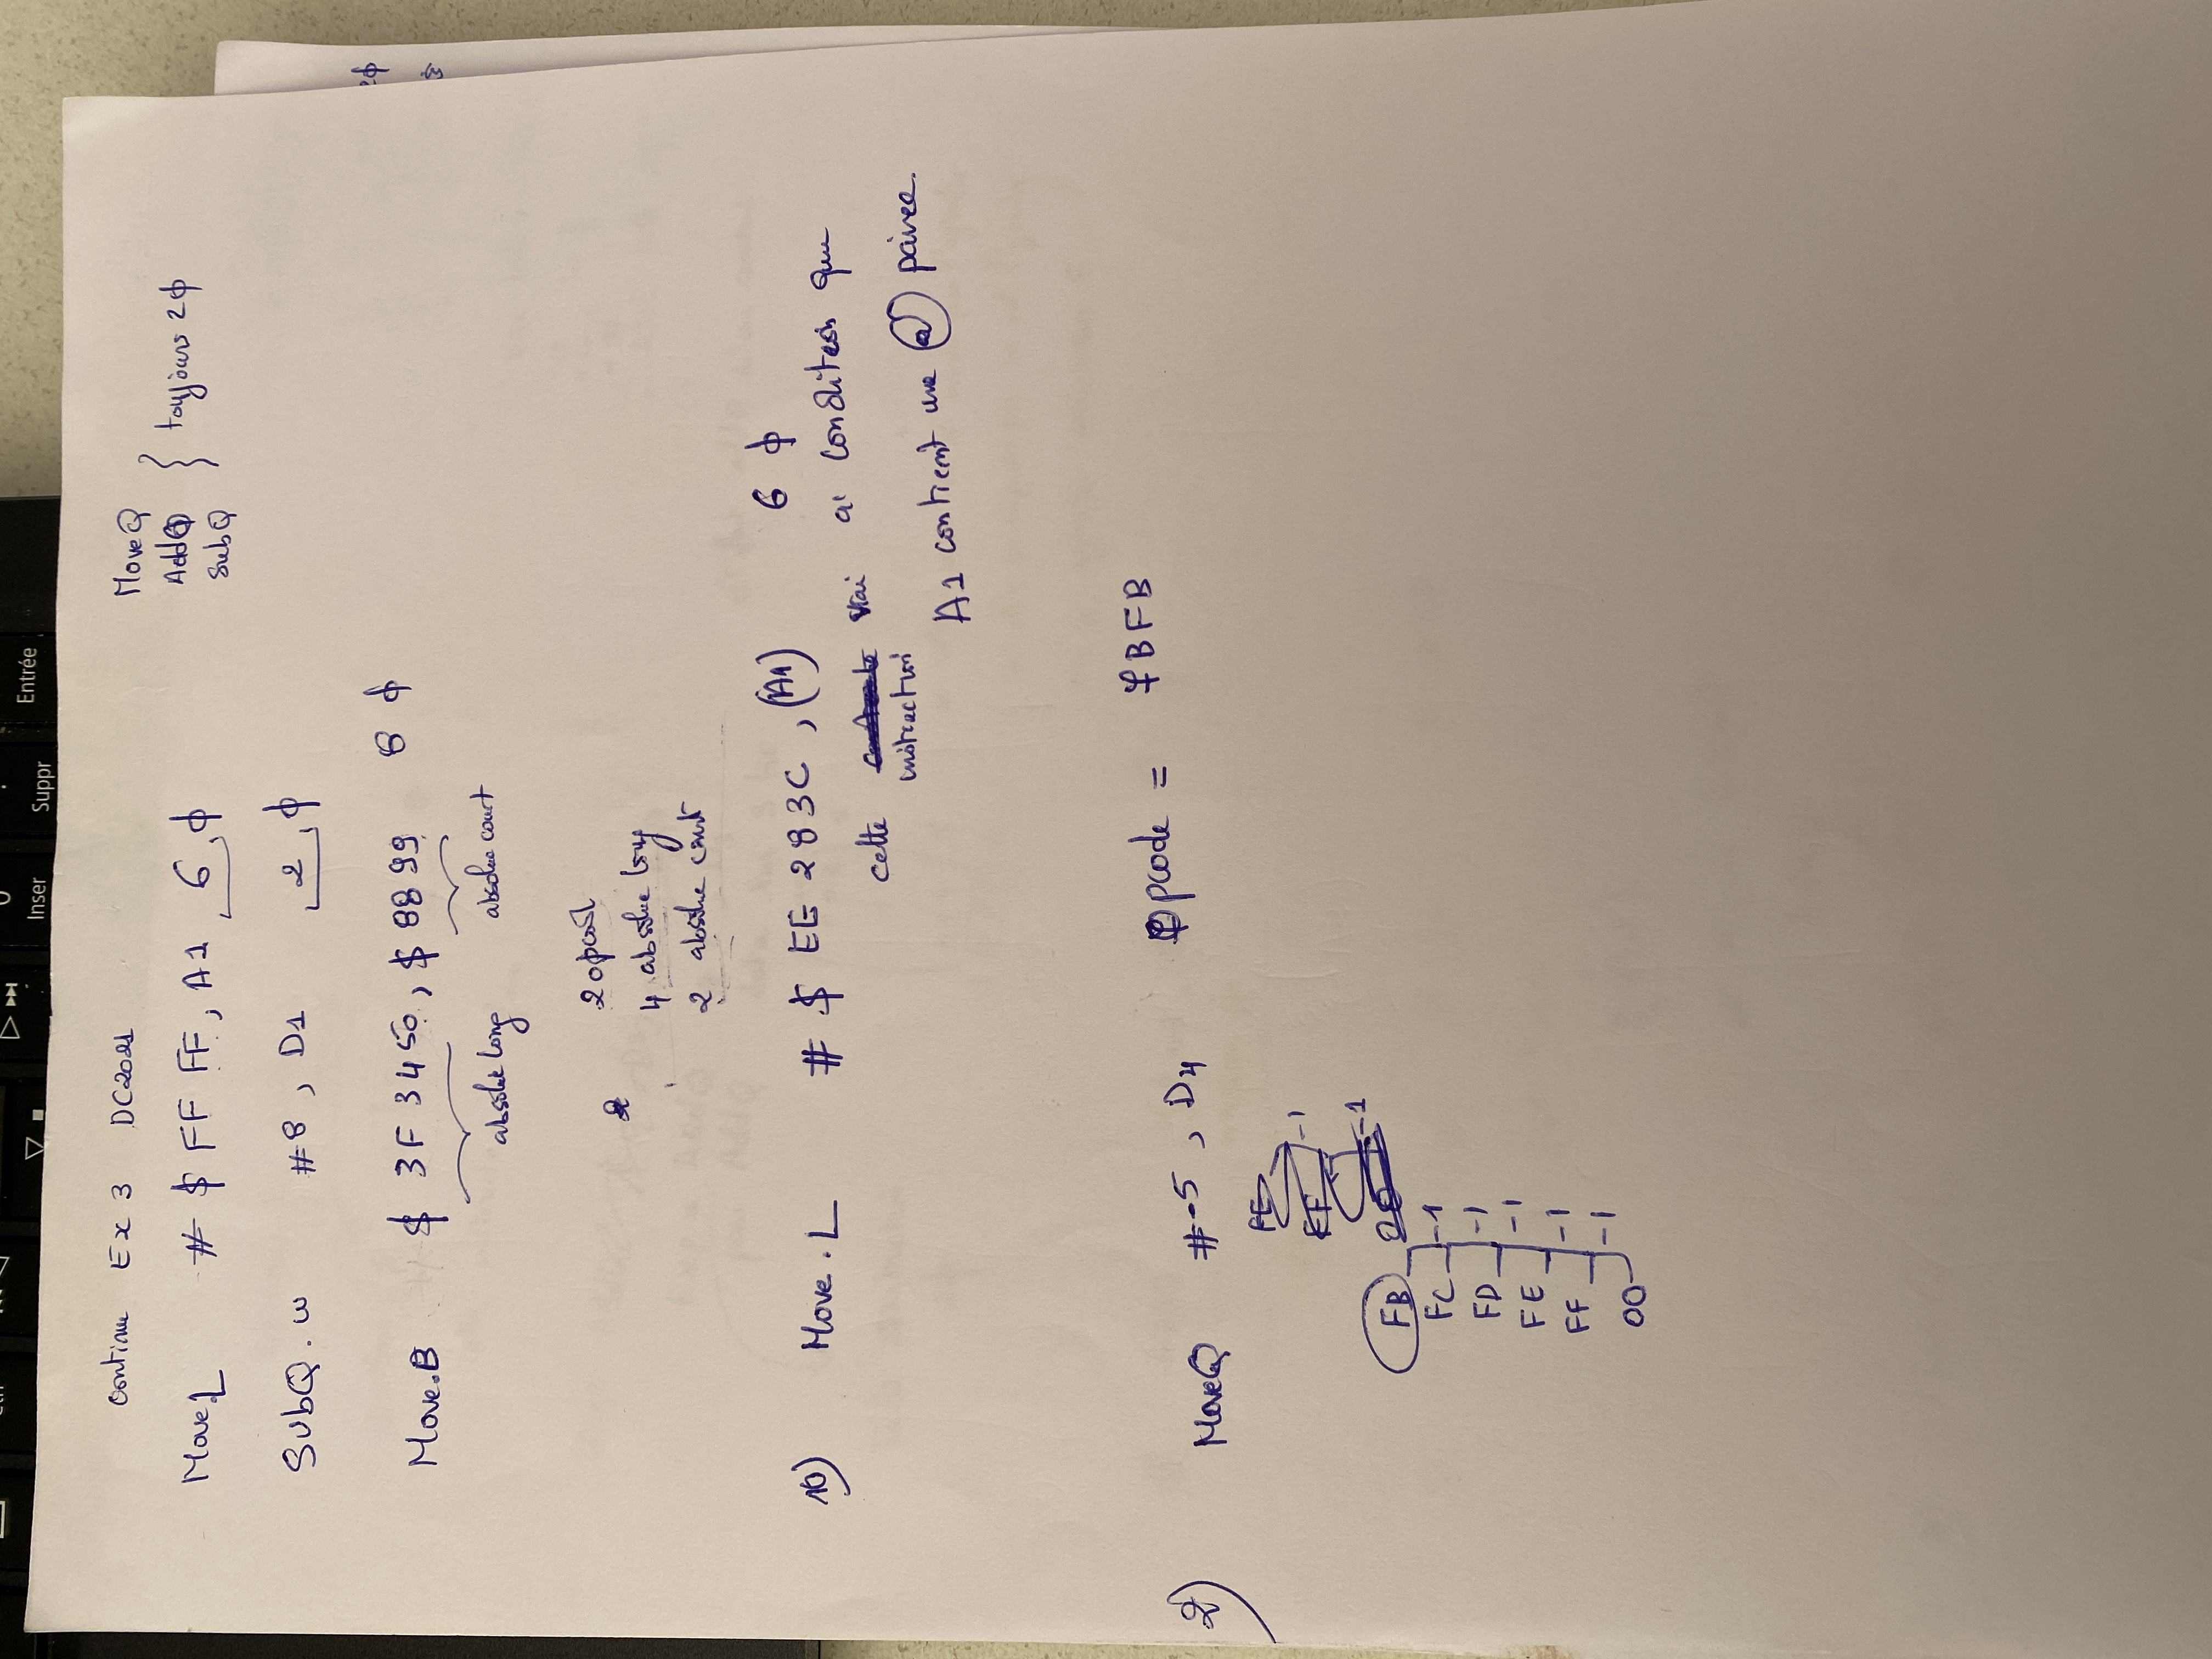 Inser
Suppr
Entrée
Continue Ex 3 DC2021
MoveQ
AddQ
SubQ
toujours 2ϕ
Move.L # $ FF FF, A1 6 ϕ
SubQ.w #8, D1 2 ϕ
Move.B $ 3F 3450, $ 8899 8 ϕ
absolue long absolue court
2 opcod
4 absolue long
2 absolue court
10) Move.L # $ EE 283C, (A1) 6 ϕ
cette instruction vrai a' condition que
A1 contient une @ pairee.
2) MoveQ #-5, D4 opcode = 7BFB
FE
-1
FF
-1
FB 00
FC -1
FD -1
FE -1
FF -1
00 -1